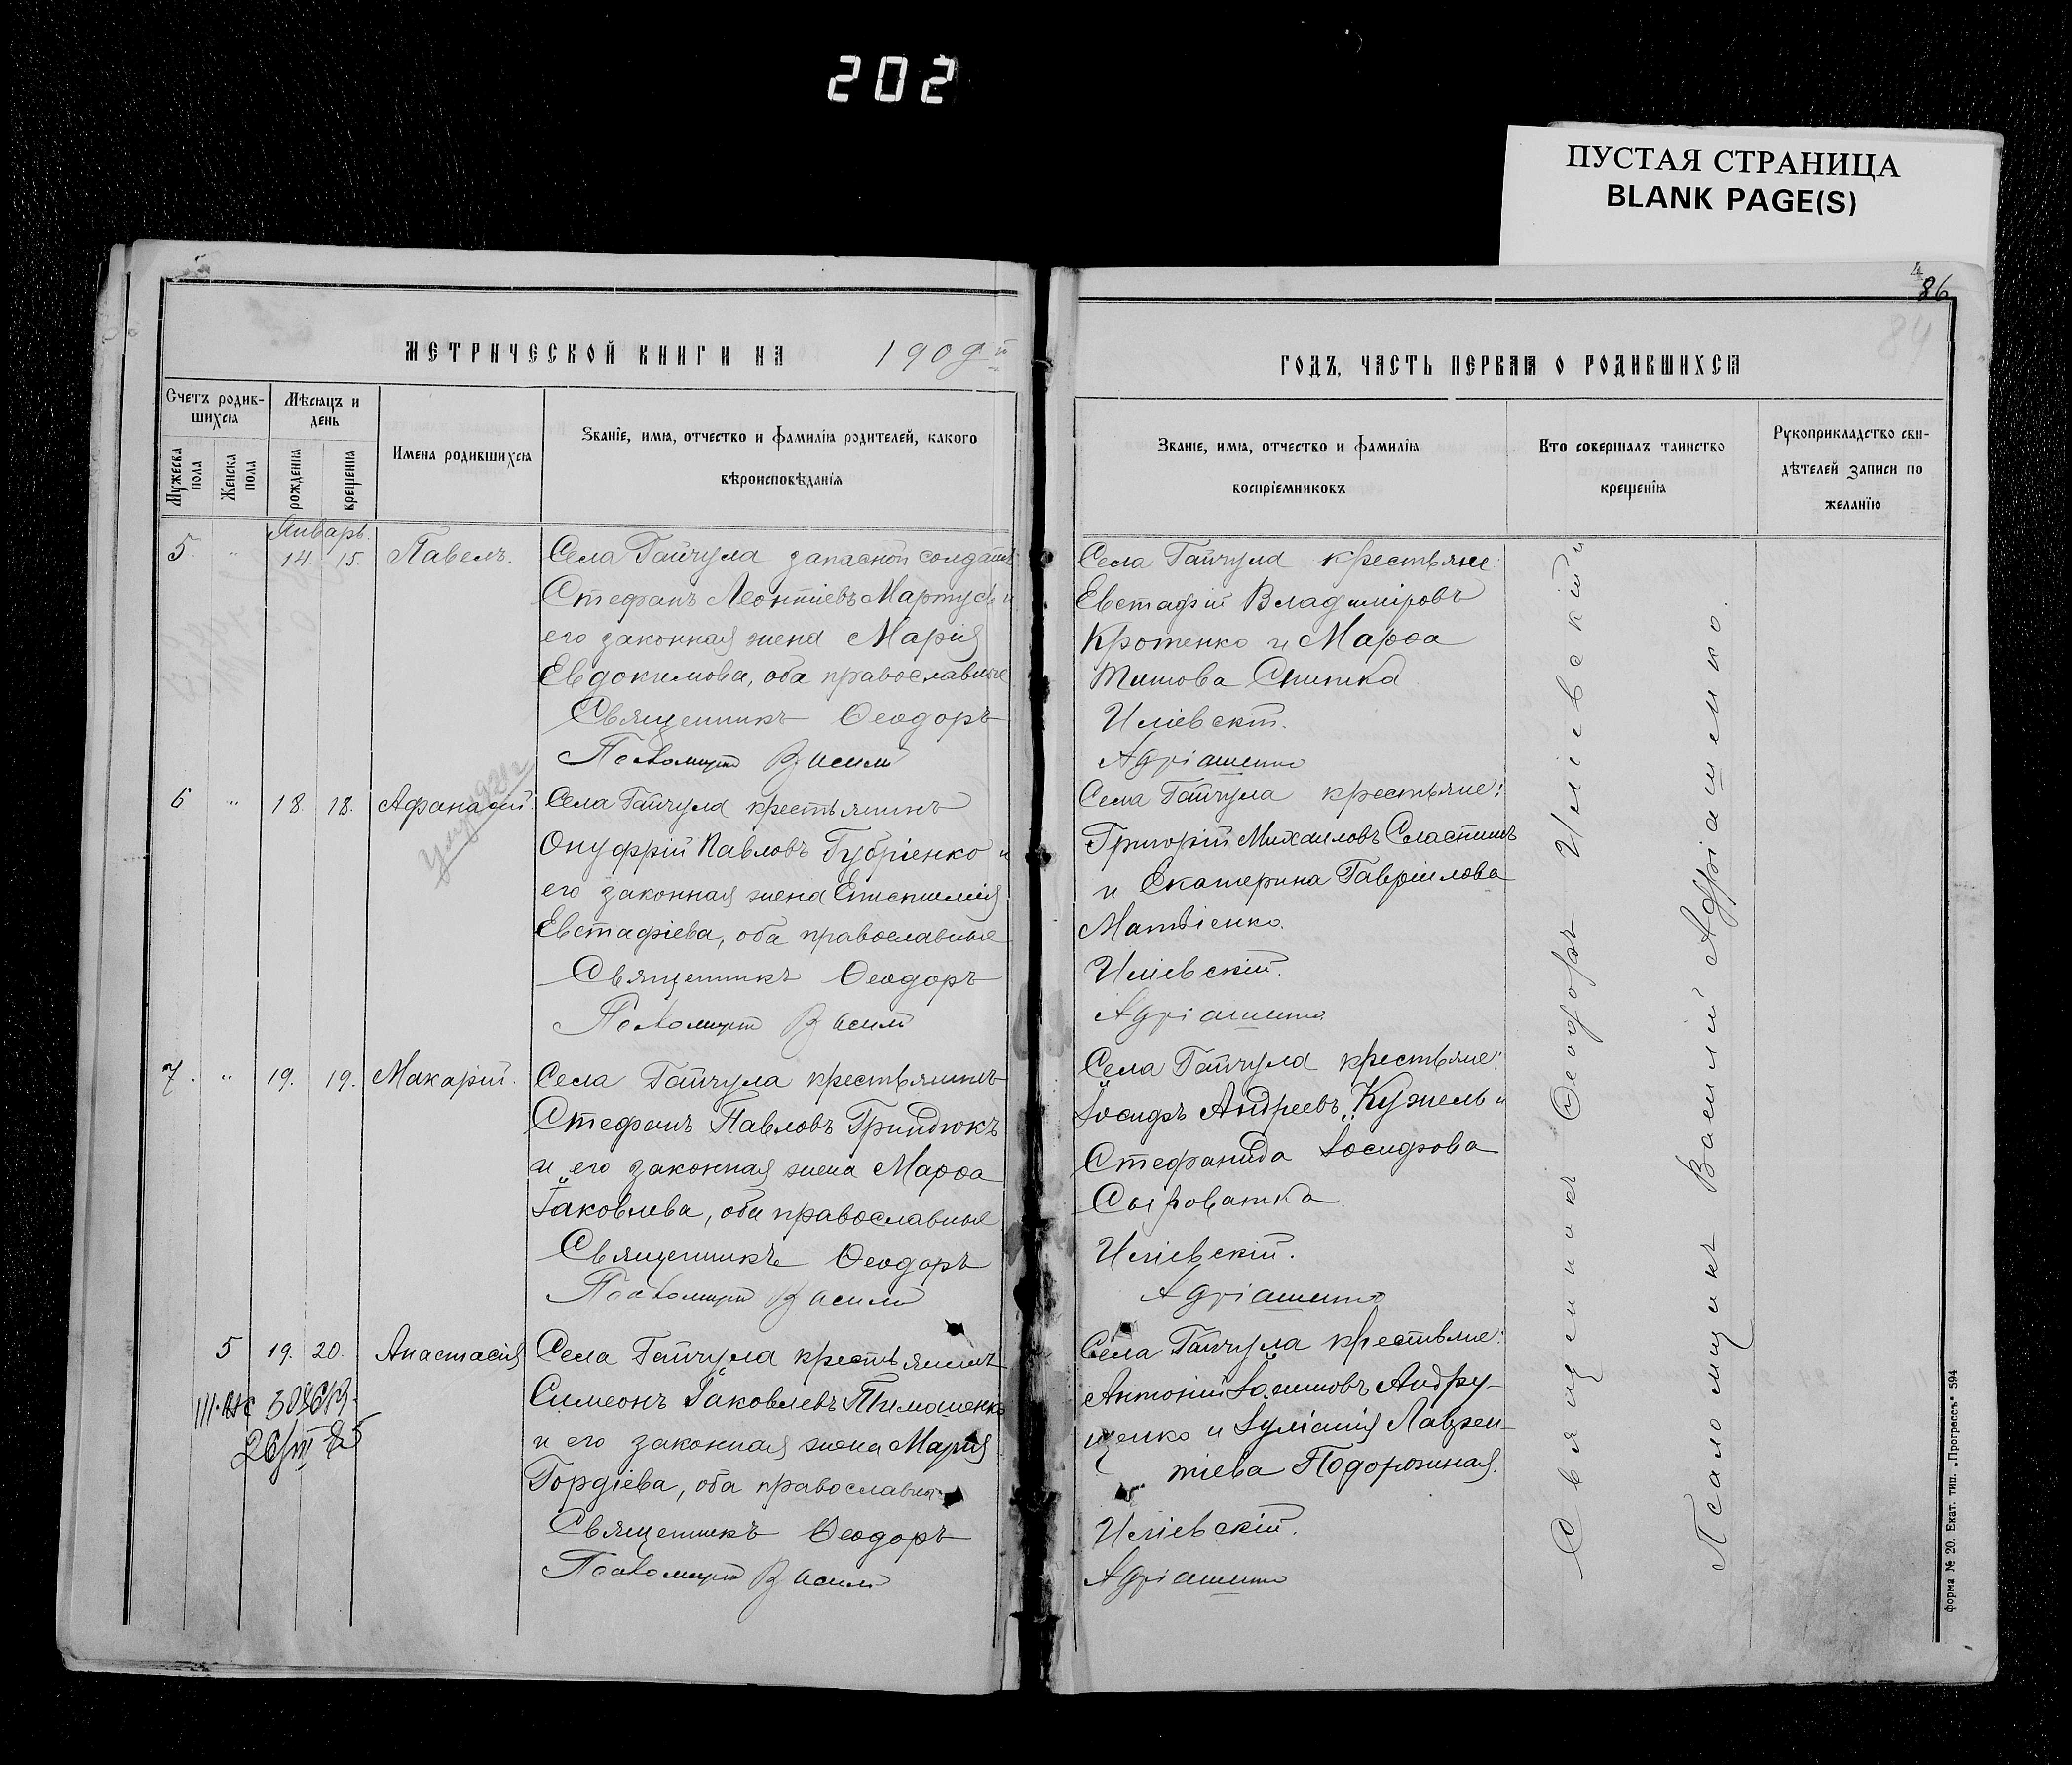 202
ПУСТАЯ СТРАНИЦА
BLANK PAGE(S)
4
86
84
МЕТРИЧЕСКОЙ КНИГИ НА 1909й
Счетъ родив-
шихся
Мѣсяцъ и
день
Мужеска
пола
Женска
пола
рожденія
крещенія
Имена родившихся
Званіе, имя, отчество и фамилія родителей, какого
вѣроисповѣданія
Январь.
5. " 14. 15. Павелъ.
Села Гайчула запасной солдатъ
Стефанъ Леонтіевъ Мартусь и
его законная жена Марія
Евдокимова, оба православные
Священникъ Ѳеодоръ
Псаломщикъ Василій
6 " 18. 18. Афанасій.
Села Гайчула крестьянинъ
Онуфрій Павловъ Губріенко и
его законная жена Епистимія
Евстафіева, оба православные
Священникъ Ѳеодоръ
Псаломщикъ Василій
7. " 19. 19. Макарій.
Села Гайчула крестьянинъ
Стефанъ Павловъ Гриндюкъ
и его законная жена Марѳа
Іаковлева, оба православные
Священникъ Ѳеодоръ
Псаломщикъ Василій
5 19. 20. Анастасія
Села Гайчула крестьянинъ
Симеонъ Іаковлевъ Тимошенко
и его законная жена Марія
Гордіева, оба православные
Священникъ Ѳеодоръ
Псаломщикъ Василій
ГОДЪ, ЧАСТЬ ПЕРВАЯ О РОДИВШИХСЯ
Званіе, имя, отчество и фамилія
воспріемниковъ
Кто совершалъ таинство
крещенія
Рукоприкладство сви-
дѣтелей записи по
желанію
Села Гайчула крестьяне
Евстафій Владиміровъ
Кротенко и Марѳа
Титова Снитка
Иліевскій.
Адріашенко
Села Гайчула крестьяне:
Григорій Михаиловъ Сластинъ
и Екатерина Гавріилова
Матвіенко.
Иліевскій.
Адріашенко
Села Гайчула крестьяне:
Іосифъ Андреевъ Кужель и
Стефанида Іосифова
Сыроватка
Иліевскій.
Адріашенко
Села Гайчула крестьяне:
Антоній Андру-
щенко и Іуліанія Лаврен-
тіева Подорожная.
Иліевскій.
Адріашенко
Священникъ Ѳеодоръ Иліевскій
Псаломщикъ Василій Адріашенко.
форма № 20. Екат. тип. „Прогрессъ" 594